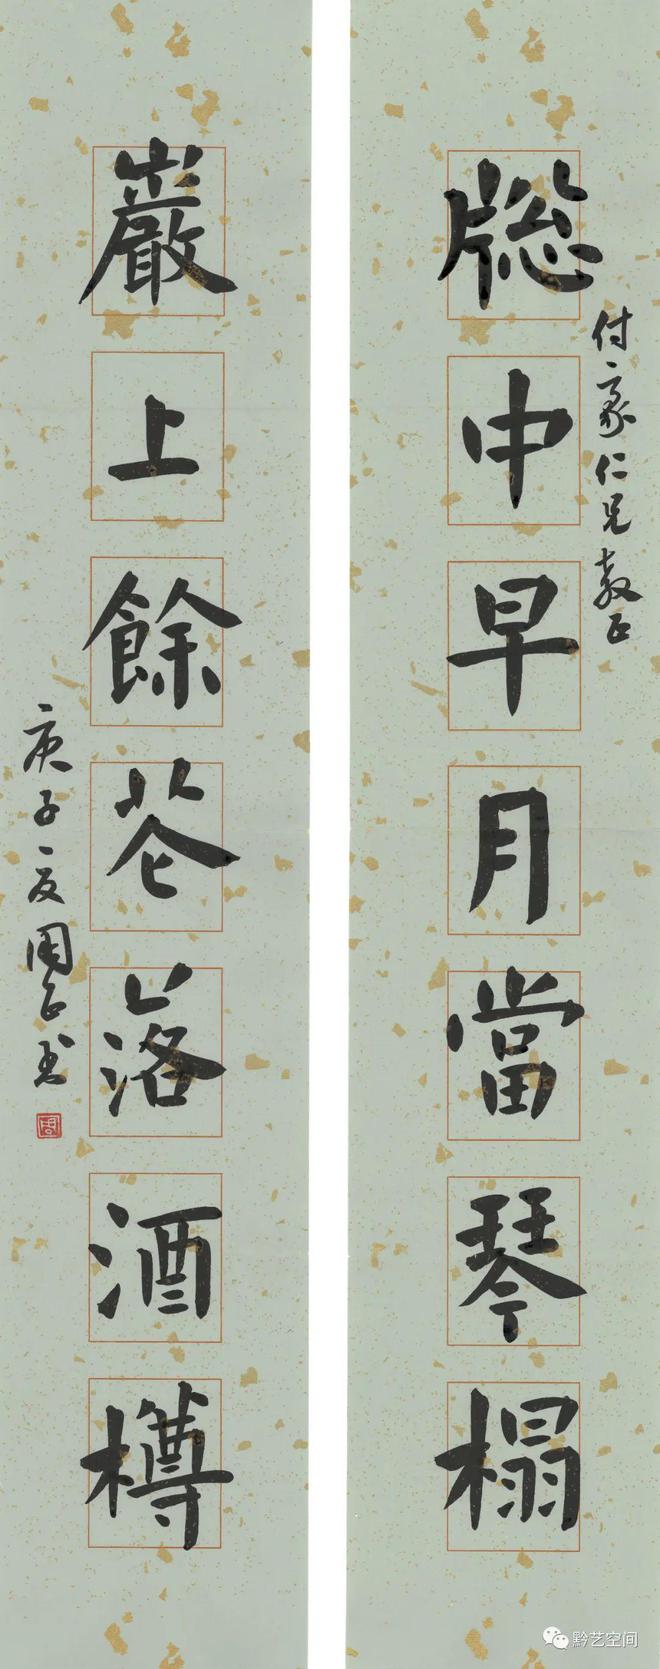 牕中早月當琴榻
付豪仁兄教正
巖上餘花落酒樽
庚子夏周正书
黔艺空间